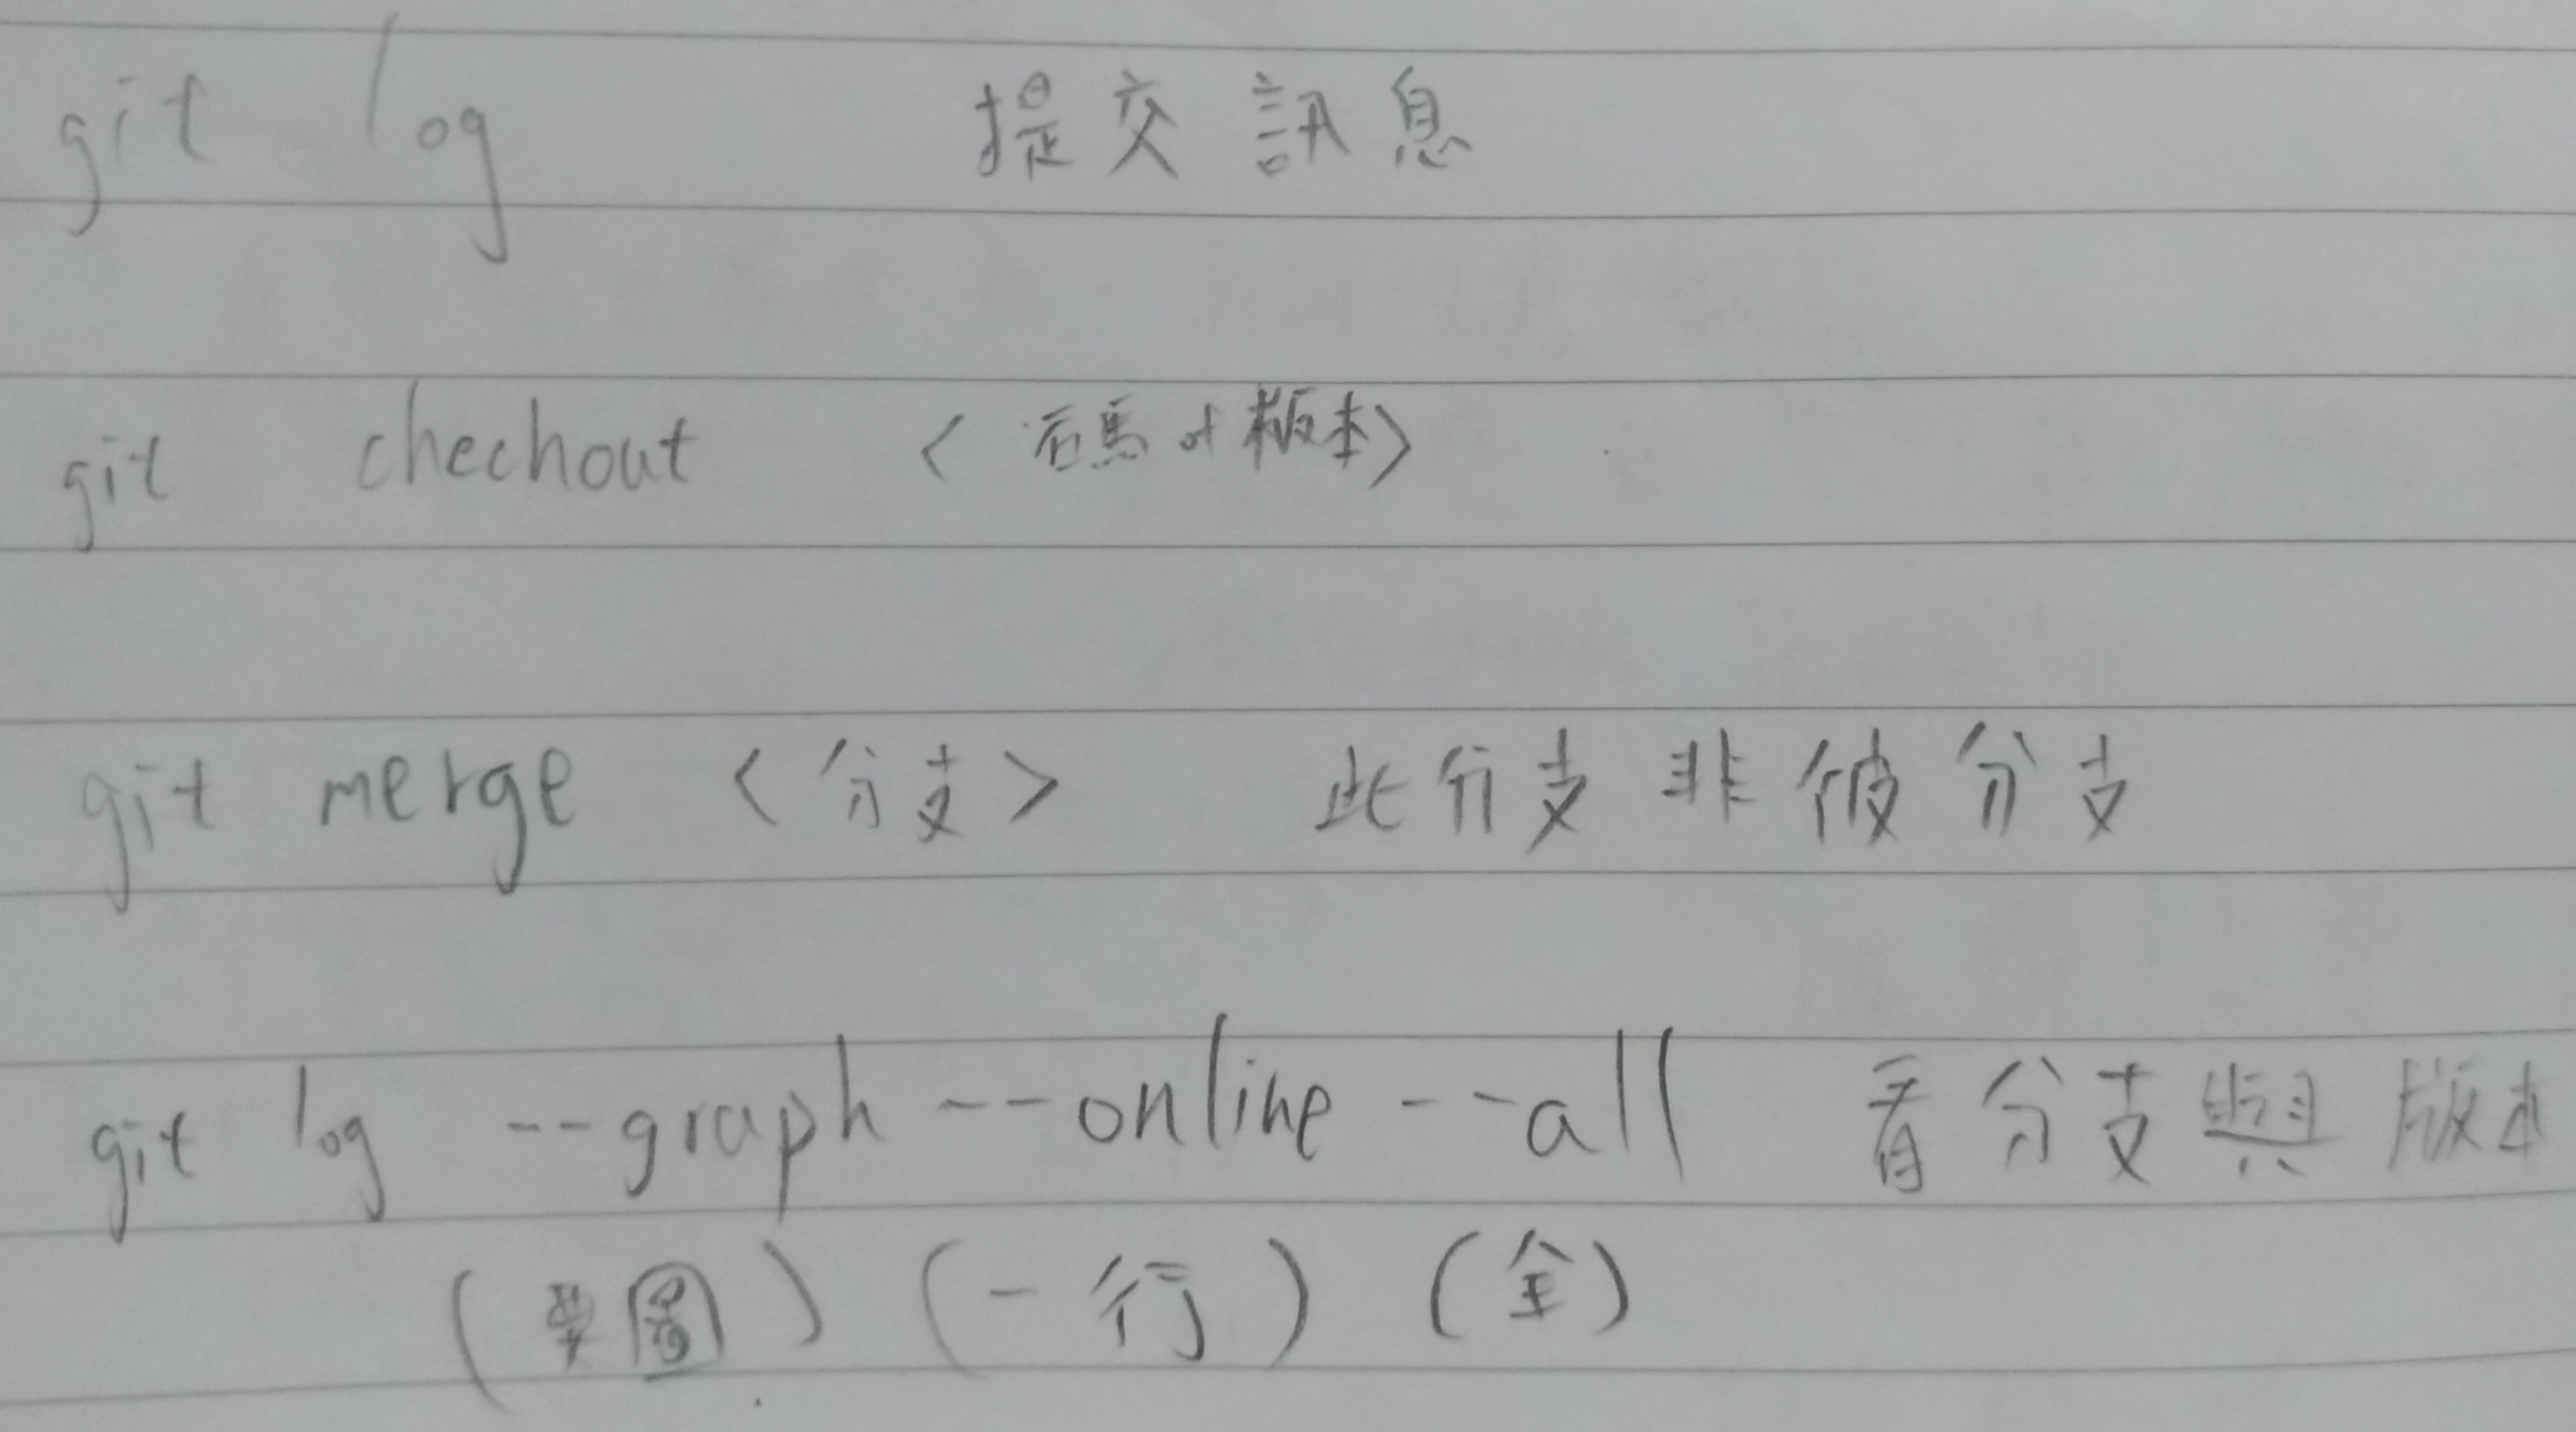 git log 提交訊息
git chechout <碼 of 版本>
git merge <分支> 此分支非彼分支
git log --graph --online --all 看分支與版本
(圖) (一行) (全)